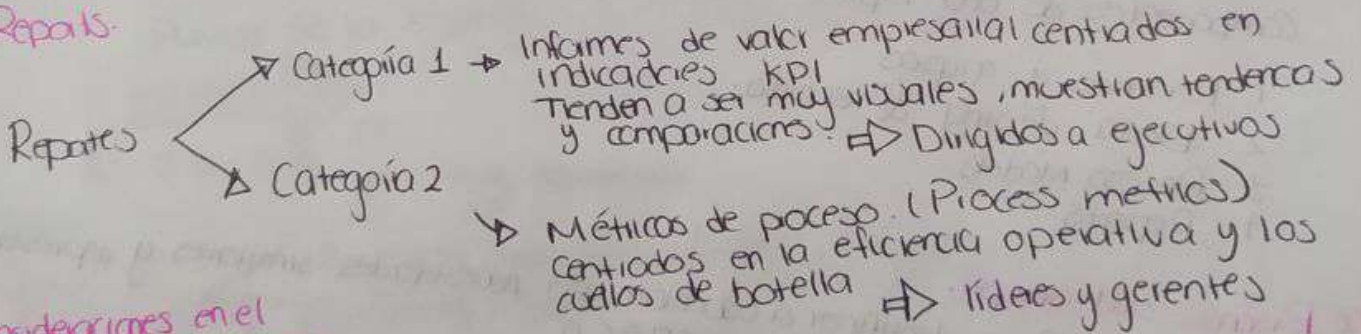 Reports.
Reportes
Categoría 1 → Informes de valor empresarial centrados en
indicadores KPI
Tienden a ser muy visuales, muestran tendencas
y comparaciones. ⇒ Dirigidos a ejecutivos
Categoría 2
Métricas de proceso. (Process metrics)
centrados en la eficiencia operativa y los
cuellos de botella ⇒ líderes y gerentes
en el